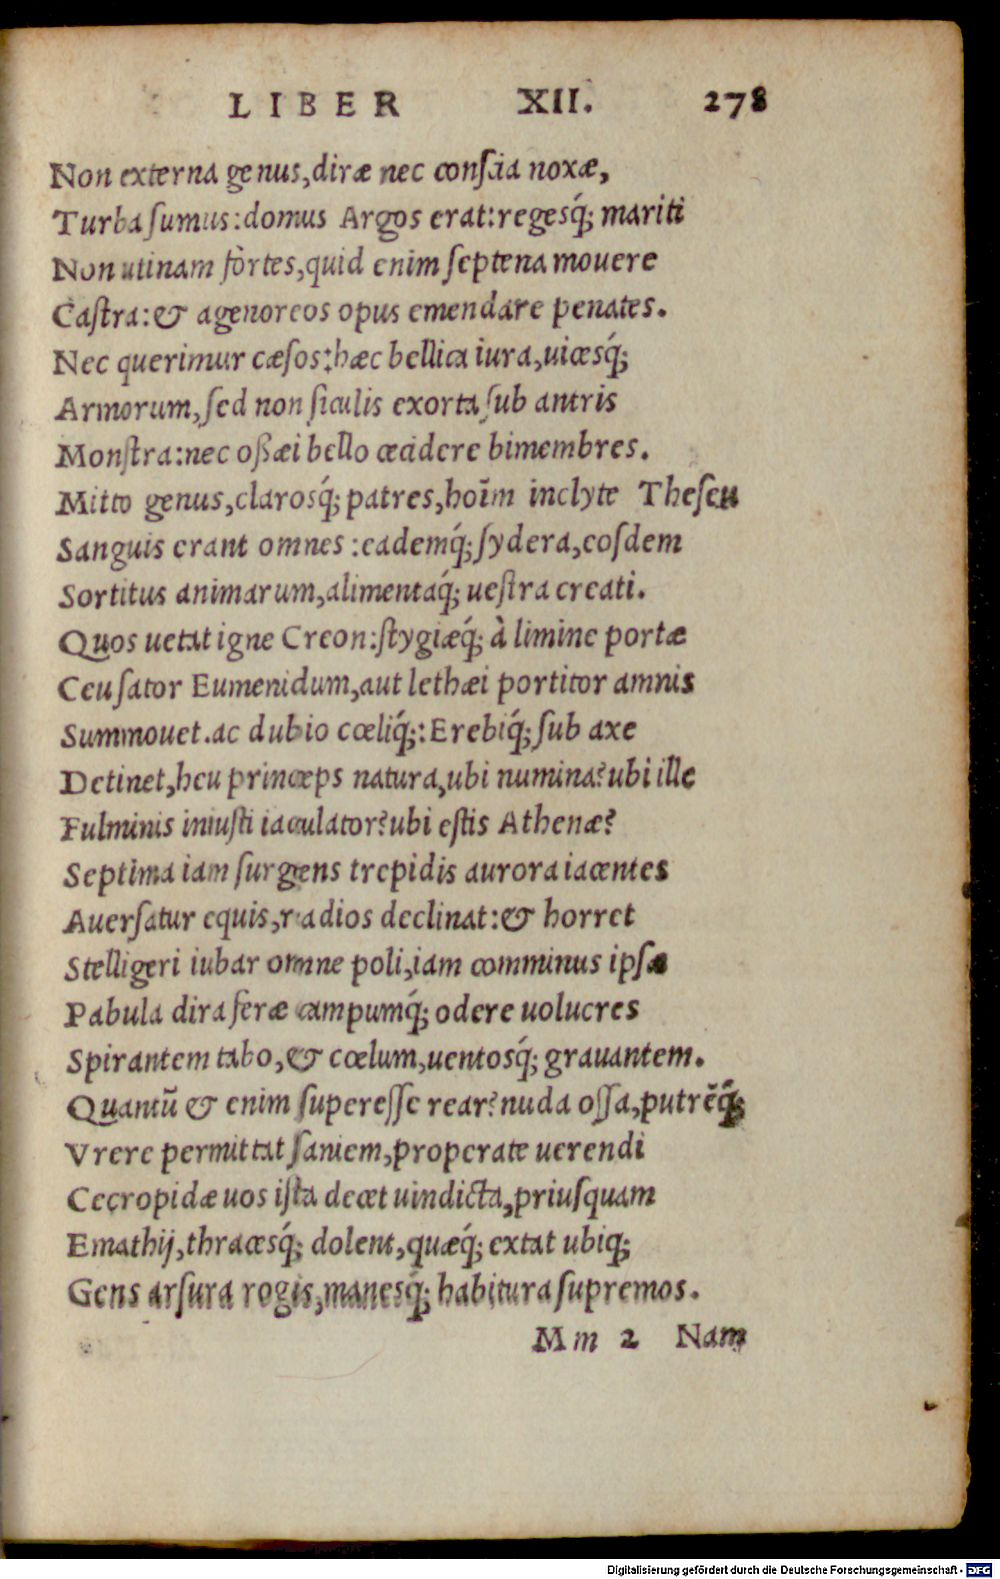 LIBER XII. 278
Non externa genus, diræ nec conscia noxæ,
Turba sumus: domus Argos erat: regesq́; mariti
Non utinam fortes, quid enim septena mouere
Castra: & agenoreos opus emendare penates.
Nec querimur cæsos: hæc bellica iura, uicesq́;
Armorum, sed non siculis exorta sub antris
Monstra: nec oßæi bello cecidere bimembres.
Mitto genus, clarosq́; patres, hoīm inclyte Theseu
Sanguis erant omnes: eademq́; sydera, eosdem
Sortitus animarum, alimentaq́; uestra creati.
Quos uetat igne Creon: stygiæq́; à limine portæ
Ceu sator Eumenidum, aut lethæi portitor amnis
Summouet. ac dubio cœliq́;: Erebiq́; sub axe
Detinet, heu princeps natura, ubi numina? ubi ille
Fulminis iniusti iaculator? ubi estis Athenæ?
Septima iam surgens trepidis aurora iacentes
Auersatur equis, radios declinat: & horret
Stelligeri iubar omne poli, iam comminus ipsæ
Pabula dira feræ campumq́; odere uolucres
Spirantem tabo, & cœlum, uentosq́; grauantem.
Quantū & enim superesse rear? nuda ossa, putrēq́;
Vrere permittat saniem, properate uerendi
Cecropidæ uos ista decet uindicta, priusquam
Emathij, thracesq́; dolent, quæq́; extat ubiq;
Gens arsura rogis, manesq́; habitura supremos.
Mm 2 Nam
Digitalisierung gefördert durch die Deutsche Forschungsgemeinschaft - DFG